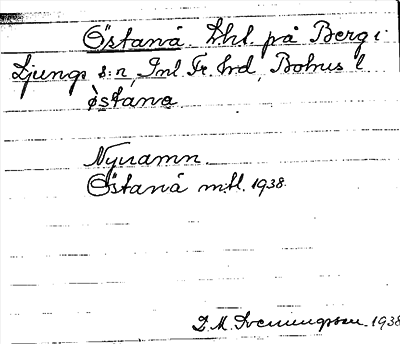 Östanå. Lhl. på Berg i
Ljungs s:n, Inl. Fr. hd, Bohus l
östana
Nynamn.
Östanå mtl. 1938.
D. M. Svenungsson. 1938